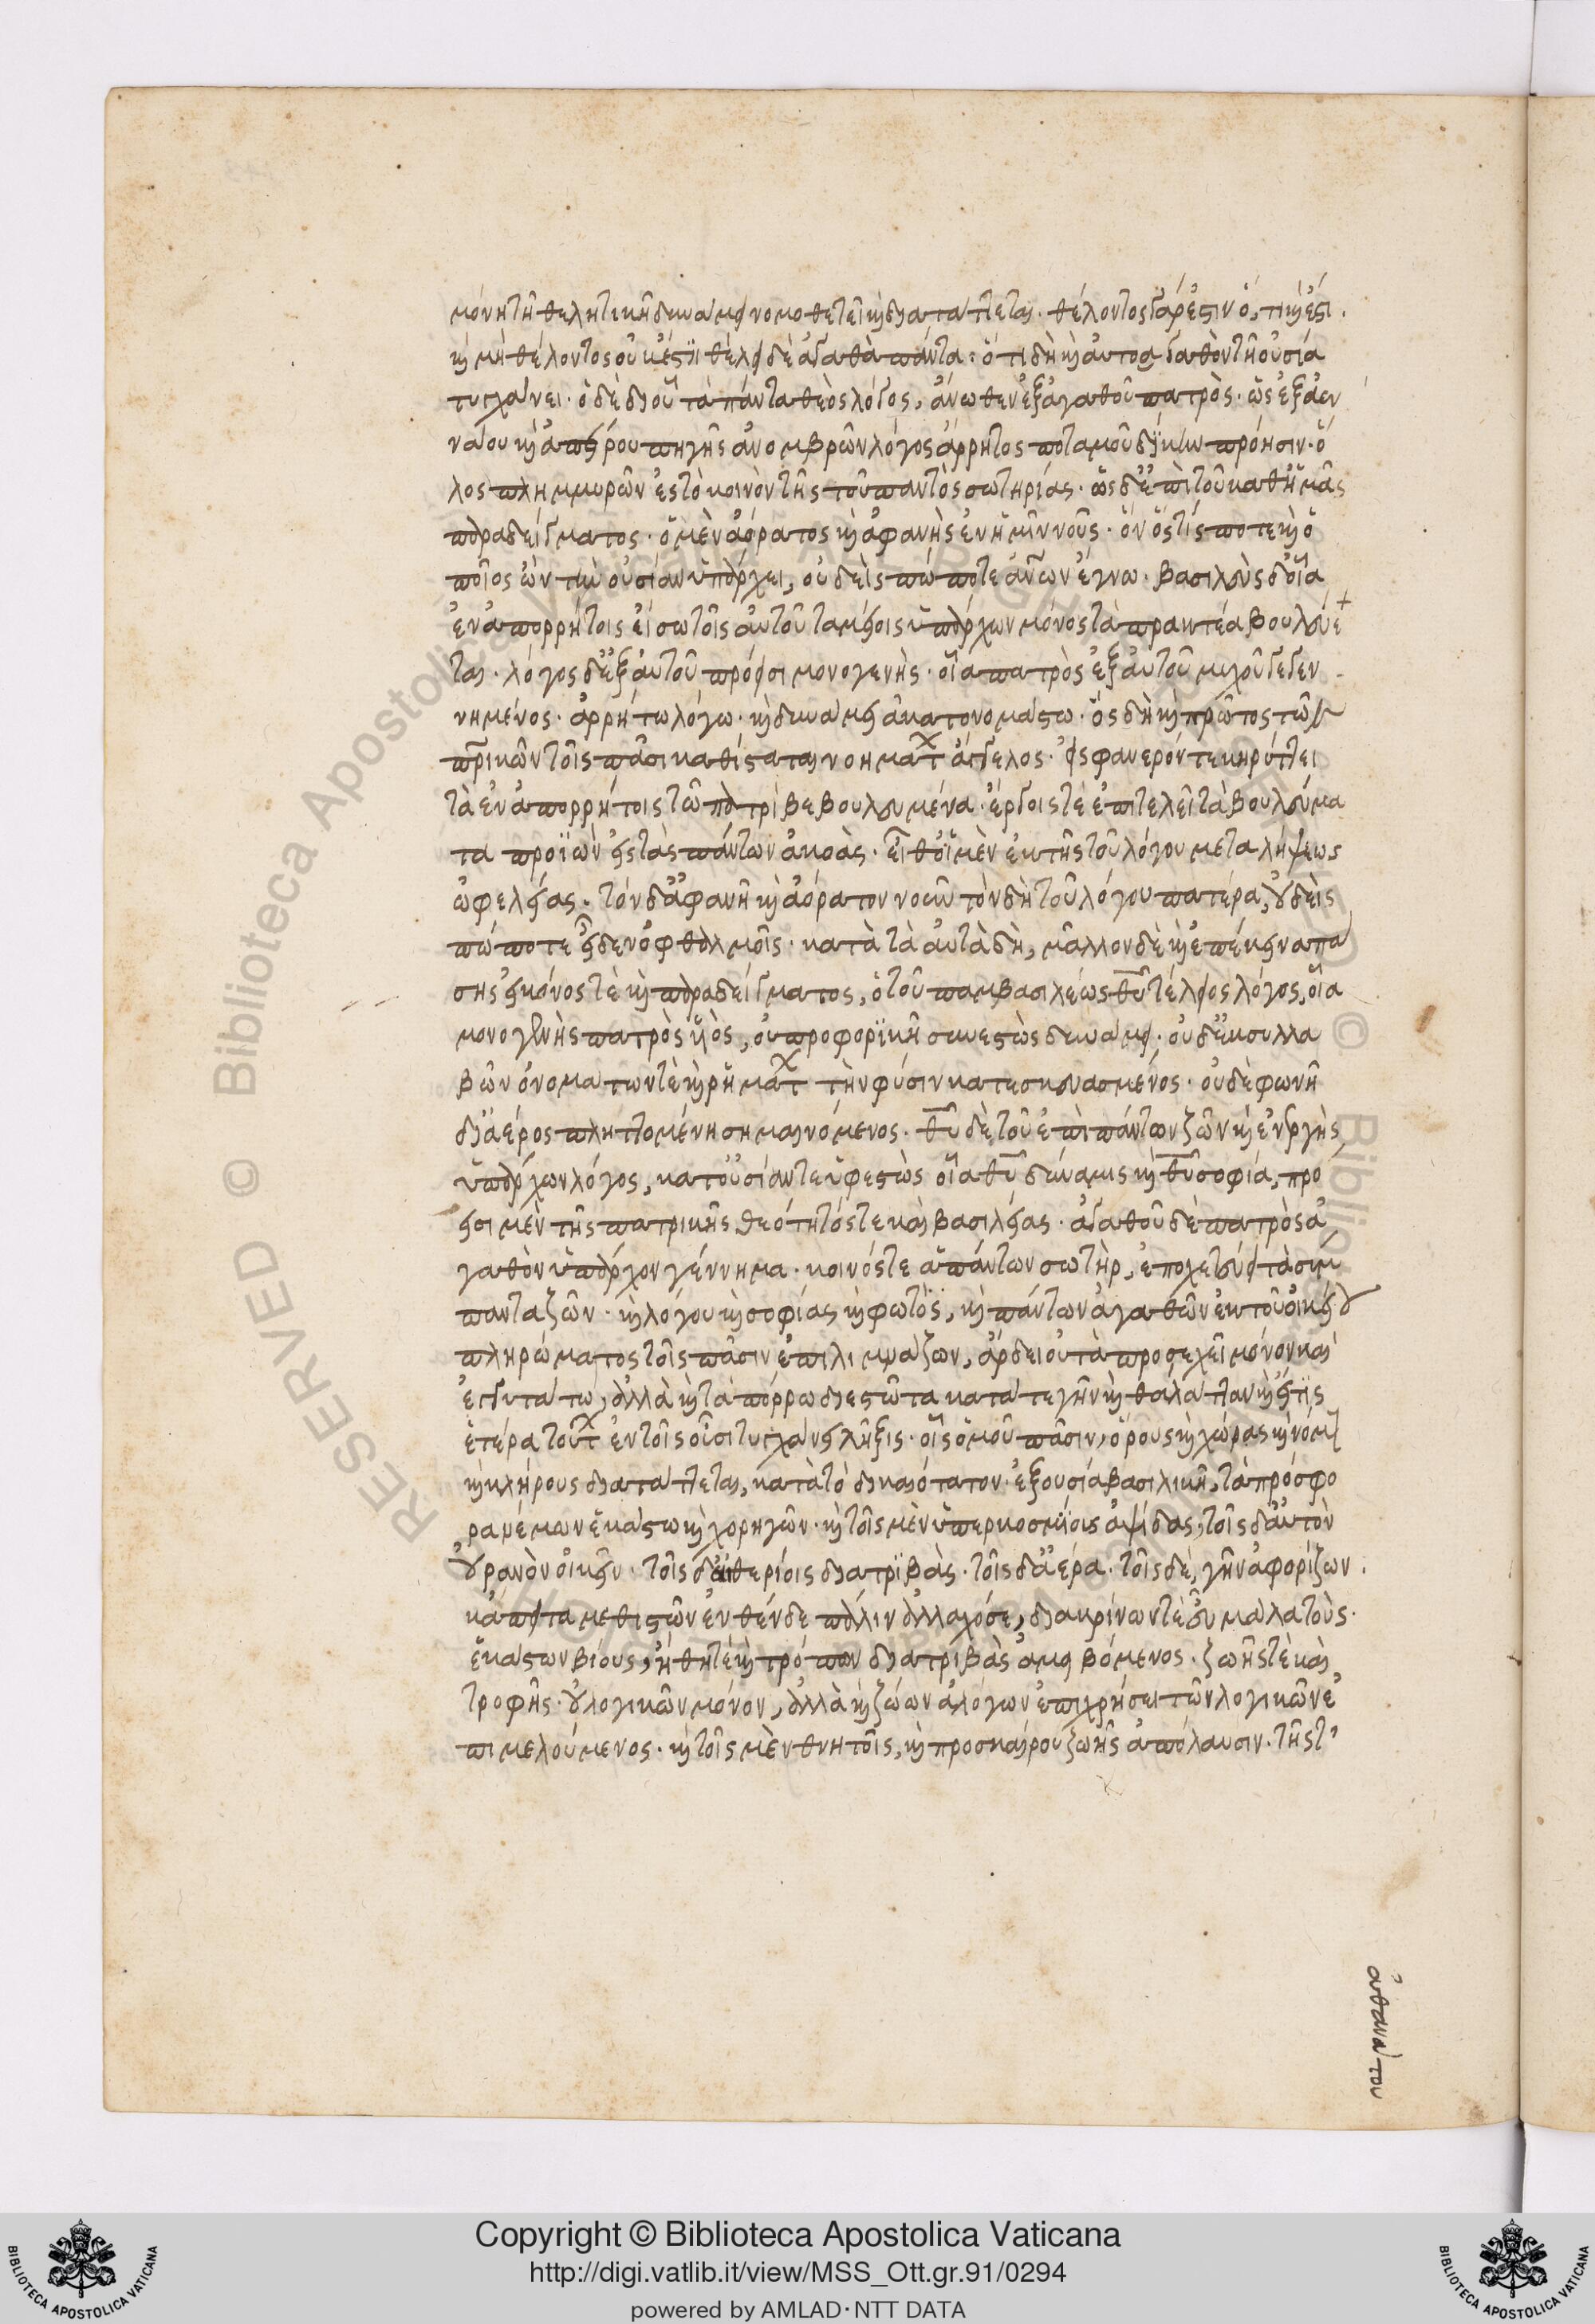 μόνη τῆ θελητικῆ δυνάμει νομοθετεῖ καὶ διατάττεται. θέλοντος γάρ ἐστιν ὅ, τι καὶ ἔστι.
καὶ μὴ θέλοντος οὐκ ἔστι θέλει δὲ ἀγαθὰ πάντα· ὅτι δὴ καὶ αὐτὸς ἀγαθὸν τῆ οὐσία
τυγχάνει. ὁ δὲ δι' οὗ τὰ πάντα θεὸς λόγος, ἄνωθεν ἐξ ἀγαθοῦ πατρὸς. ὡς ἐξ ἀεν
νάου καὶ ἀπείρου πηγῆς ἀνομβρῶν λόγος ἄρρητος ποταμοῦ δίκην πρόησιν. ὅ
λος πλημμυρῶν εἰς τὸ κοινὸν τῆς τοῦ παντὸς σωτηρίας. ὡς δ' ἐπὶ τοῦ καθ' ἡμᾶς
παραδείγματος. ὁ μὲν ἀόρατος καὶ ἀφανὴς ἐν ἡμῖν νοῦς. ὃν ὅστίς ποτε καὶ ὁ
ποῖος ὢν τὴν οὐσίαν ὑπάρχει, οὐδεὶς πώποτε ἀνων ἔγνω. βασιλεὺς δ' οἷα
ἐν ἀπορρήτοις εἴσω τοῖς αὐτοῦ ταμείοις ὑπάρχων μόνος τὰ πρακτέα βουλεύε
ται. λόγος δ' ἐξ αὐτοῦ πρόεισι μονογενὴς. οἷα πατρὸς ἐξ αὐτοῦ μυχοῦ γεγεν
νημένος. ἀρρήτω λόγω. καὶ δυνάμει ἀκατονομάστω. ὃς δὴ καὶ πρῶτος τῶν
πρικῶν τοῖς πᾶσι καθίσταται νοημάτ ἄγγελος. εἰς φανερόν τε κηρύττει
τὰ ἐν ἀπορρήτοις τῶ πατρὶ βεβουλευμένα. ἔργοις τὲ ἐπιτελεῖ τὰ βουλεύμα
τα προϊὼν εἰς τὰς πάντων ἀκοὰς. εἶθ' οἱ μὲν ἐκ τῆς τοῦ λόγου μεταλήψεως
ὠφελείας. τὸν δ' ἀφανῆ καὶ ἀόρατον νοῦν τὸν δὴ τοῦ λόγου πατέρα, οὐδεὶς
πώποτε εἶδεν ὀφθαλμοῖς. κατὰ τὰ αὐτὰ δὴ, μᾶλλον δὲ καὶ ἐπέκεινα πά
σης εἰκόνος τὲ καὶ παραδείγματος, ὁ τοῦ παμβασιλέως θυ τέλειος λόγος, οἷα
μονογενὴς πατρὸς υἱὸς, οὐ προφορϊκῆ συνεστὼς δυνάμει. οὐδ' ἐκ συλλα
βῶν ὀνομάτων τὲ καὶ ρημάτ τὴν φύσιν κατεσκευασμένος. οὐδὲ φωνῆ
δι' ἀέρος πληττομένη σημαινόμενος. θυ δὲ τοῦ ἐπὶ πάντων ζῶν καὶ ἐνεργὴς
ὑπάρχων λόγος, κατ' οὐσίαν τε ὑφεστὼς οἷα θυ δύναμις καὶ θυ σοφία, πρό
εισι μὲν τῆς πατρικῆς θεότητός τε καὶ βασιλείας. ἀγαθοῦ δὲ πατρὸς ἀ
γαθὸν ὑπάρχον γέννημα. κοινός τε ἁπάντων σωτὴρ, ἐποχετεύει τὰ σύμ
παντα ζῶν. καὶ λόγου καὶ σοφίας καὶ φωτὸς, καὶ πάντων ἀγαθῶν ἐκ τοῦ οἰκείου
πληρώματος τοῖς πᾶσιν ἐπιλιμνάζων, ἄρδει οὐ τὰ προσεχεῖ μόνον καὶ
ἐγγυτάτω, ἀλλὰ καὶ τὰ πόρρω διεστῶτα κατά τε γῆν καὶ θάλατταν καὶ εἴ τις
ἑτέρα τούτ ἐν τοῖς οὖσι τυγχάνει λῆξις. οἷς ὁμοῦ πᾶσιν, ὅρους καὶ χώρας καὶ νόμ
καὶ κλήρους διατάττεται, κατὰ τὸ δικαιότατον. ἐξουσία βασιλικῆ, τὰ πρόσφο
ρα νέμων ἑκάστω καὶ χορηγῶν. καὶ τοῖς μὲν ὑπερκοσμίοις ἁψίδας, τοῖς δ' αὐτὸν
οὐρανὸν οἰκεῖν. τοῖς δ' αἰθερίοις διατρϊβὰς. τοῖς δ' ἀέρα. τοῖς δὲ, γῆν ἀφορίζων.
κἄπειτα μεθιστῶν ἐνθένδε πάλιν ἀλλαχόσε, διακρίνων τὲ εὖ μάλα τοὺς.
ἑκάστων βίους, ἤθη τὲ καὶ τρόπων διατριβὰς ἀμειβόμενος. ζωῆς τὲ καὶ
τροφῆς. οὐ λογικῶν μόνον, ἀλλὰ καὶ ζώων ἀλόγων ἐπιχρήσει τῶν λογικῶν ἐ
πιμελούμενος. καὶ τοῖς μὲν θνητοῖς, καὶ προσκαίρου ζωῆς ἀπόλαυσιν. τῆς τ'
ἀθανάτου
RESERVED © Biblioteca Apostolica Vaticana
Copyright © Biblioteca Apostolica Vaticana
http://digi.vatlib.it/view/MSS_Ott.gr.91/0294
powered by AMLAD·NTT DATA
BIBLIOTECA APOSTOLICA VATICANA
BIBLIOTECA APOSTOLICA VATICANA